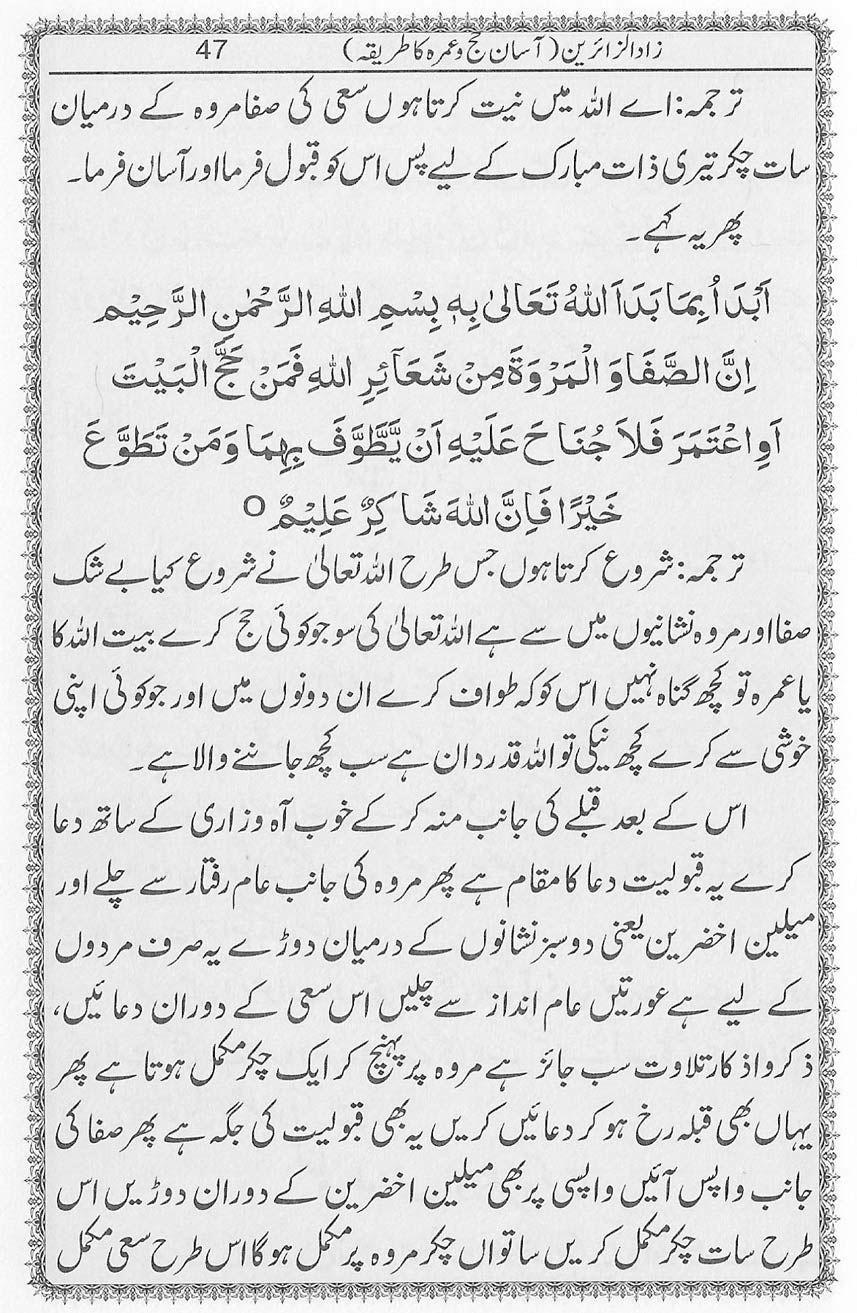 زاد الزائرین (آسان حج و عمرہ کا طریقہ) 47
ترجمہ: اے اللہ میں نیت کرتا ہوں سعی کی صفا مروہ کے درمیان
سات چکر تیری ذات مبارک کے لیے پس اس کو قبول فرما اور آسان فرما۔
پھر یہ کہے۔
اَبْدَاُ بِمَا بَدَاَ اللهُ تَعَالیٰ بِهٖ بِسْمِ اللهِ الرَّحْمٰنِ الرَّحِیْمِ
اِنَّ الصَّفَا وَ الْمَرْوَةَ مِنْ شَعَآئِرِ اللهِ فَمَنْ حَجَّ الْبَیْتَ
اَوِ اعْتَمَرَ فَلاَ جُنَاحَ عَلَیْهِ اَنْ یَّطَّوَّفَ بِهِمَا وَمَنْ تَطَوَّعَ
خَیْرًا فَاِنَّ اللهَ شَاکِرٌ عَلِیْمٌ O
ترجمہ: شروع کرتا ہوں جس طرح اللہ تعالیٰ نے شروع کیا بے شک
صفا اور مروہ نشانیوں میں سے ہے اللہ تعالیٰ کی سو جو کوئی حج کرے بیت اللہ کا
یا عمرہ تو کچھ گناہ نہیں اس کو کہ طواف کرے ان دونوں میں اور جو کوئی اپنی
خوشی سے کرے کچھ نیکی تو اللہ قدردان ہے سب کچھ جاننے والا ہے۔
اس کے بعد قبلے کی جانب منہ کر کے خوب آہ و زاری کے ساتھ دعا
کرے یہ قبولیت دعا کا مقام ہے پھر مروہ کی جانب عام رفتار سے چلے اور
میلین اخضرین یعنی دو سبز نشانوں کے درمیان دوڑے یہ صرف مردوں
کے لیے ہے عورتیں عام انداز سے چلیں اس سعی کے دوران دعائیں،
ذکر و اذکار تلاوت سب جائز ہے مروہ پر پہنچ کر ایک چکر مکمل ہوتا ہے پھر
یہاں بھی قبلہ رخ ہو کر دعائیں کریں یہ بھی قبولیت کی جگہ ہے پھر صفا کی
جانب واپس آئیں واپسی پر بھی میلین اخضرین کے دوران دوڑیں اس
طرح سات چکر مکمل کریں ساتواں چکر مروہ پر مکمل ہوگا اس طرح سعی مکمل